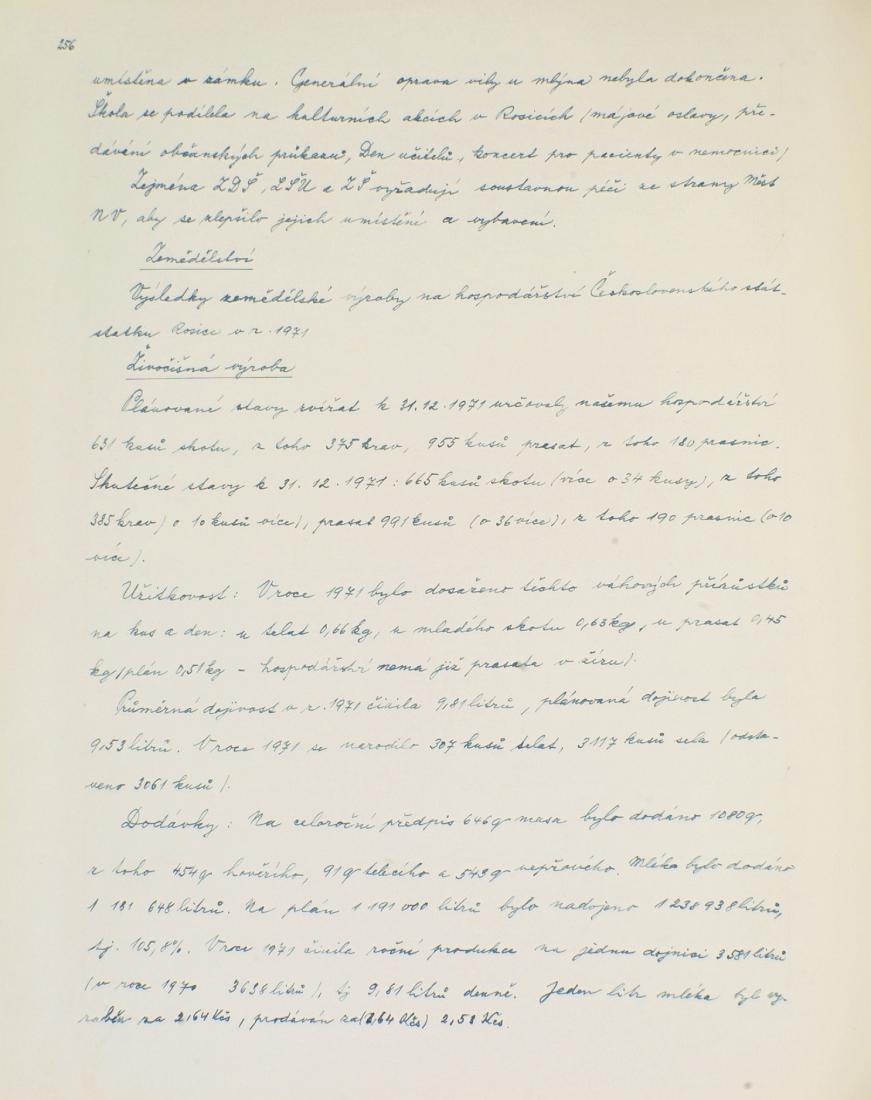 256
umístěna v zámku. Generální oprava vily u mlýna nebyla dokončena.
Škola se podílela na kulturních akcích v Rosicích (májové oslavy, pře-
dávání občanských průkazů, Den učitelů, koncert pro pacienty v nemocnici)
Zejména ZDŠ, LŠU a ZŠ vyžadují soustavnou péči ze strany Měst
NV, aby se zlepšilo jejich umístění a vybavení.
Zemědělství
Výsledky zemědělské výroby na hospodářství Československého stát-
statku Rosice v r. 1971
Živočišná výroba
Plánované stavy zvířat k 31.12.1971 určovaly našemu hospodářství
631 kusů skotu, z toho 375 krav, 955 kusů prasat, z toho 180 prasnic.
Skutečné stavy k 31. 12. 1971: 665 kusů skotu (více o 34 kusy), z toho
385 krav) o 10 kusů více), prasat 991 kusů (o 36 více), z toho 190 prasnic (o 10
více).
Užitkovost: V roce 1971 bylo dosaženo těchto váhových přírůstků
na kus a den: u telat 0,66 kg, u mladého skotu 0,63 kg, u prasat 0,45
kg (plán 0,51 kg – hospodářství nemá již prasata v žíru).
Průměrná dojivost v r. 1971 činila 9,81 litrů, plánovaná dojivost byla
9,53 litrů. V roce 1971 se narodilo 307 kusů telat, 3117 kusů sela (odsta-
veno 3061 kusů).
Dodávky: Na celoroční předpis 646 q masa bylo dodáno 1080 q,
z toho 454 q hovězího, 91 q telecího a 543 q vepřového. Mléka bylo dodáno
1 181 648 litrů. Na plán 1 191 000 litrů bylo nadojeno 1 238 938 litrů,
tj. 105,8%. V roce 1971 činila roční produkce na jednu dojnici 3581 litrů
(v roce 1970 3638 litrů), tj 9,81 litrů denně. Jeden litr mléka byl vy-
ráběn za 2,64 Kčs, prodáván za (2,64 Kčs) 2,53 Kčs.